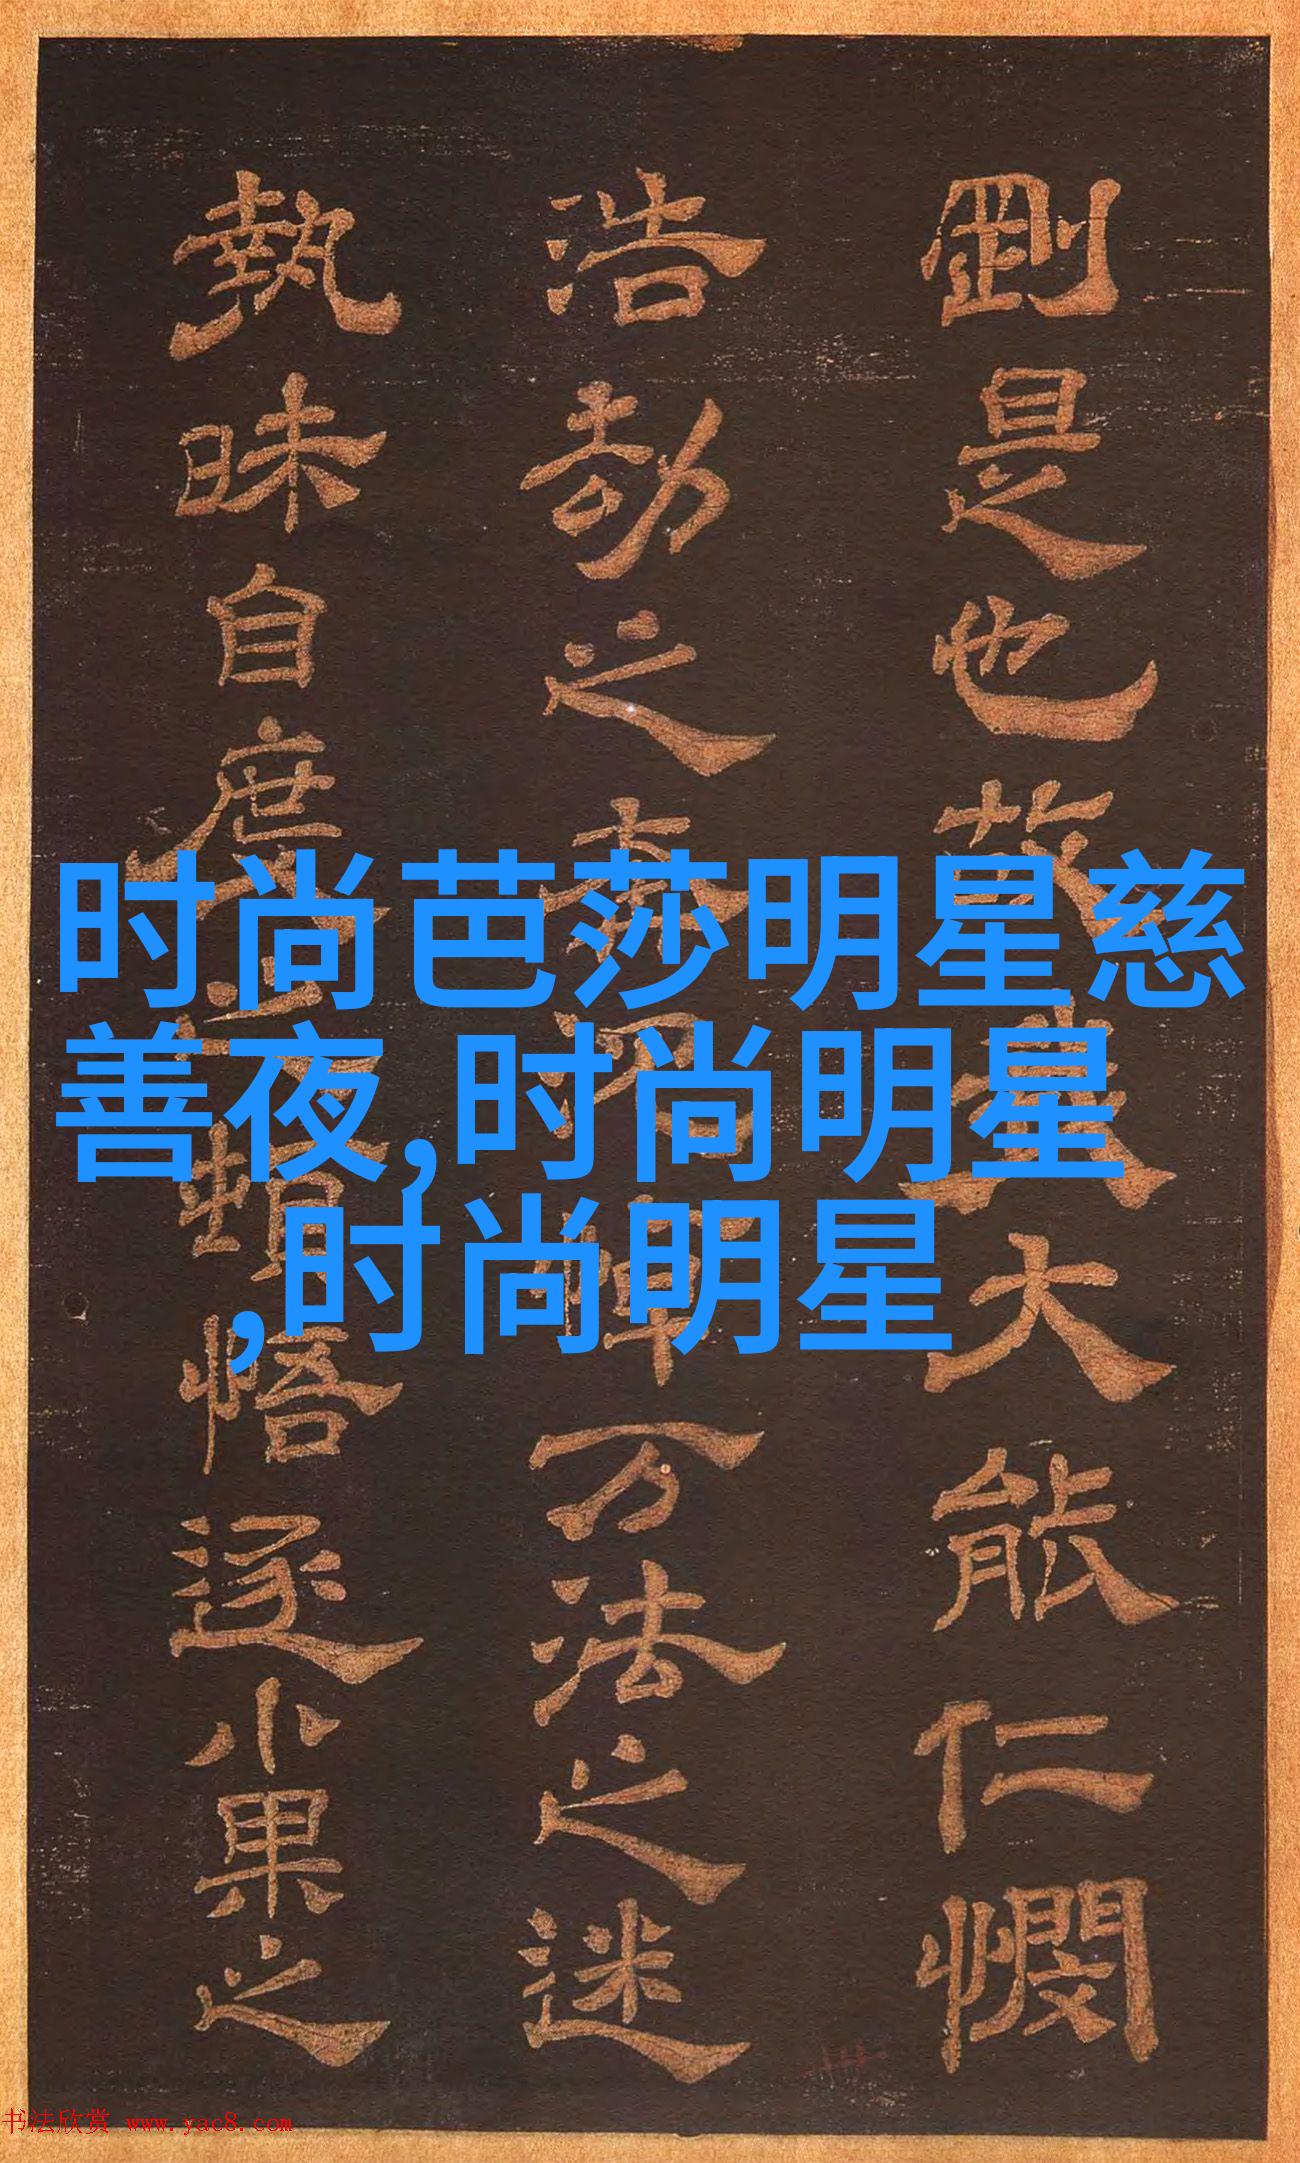 剛是也故我大能仁憫
浩劫之真万法之迷
執昧自頓悟逐小果之
时尚芭莎明星慈
善夜,时尚明星
,时尚明星
书法欣赏 www.yac8.com